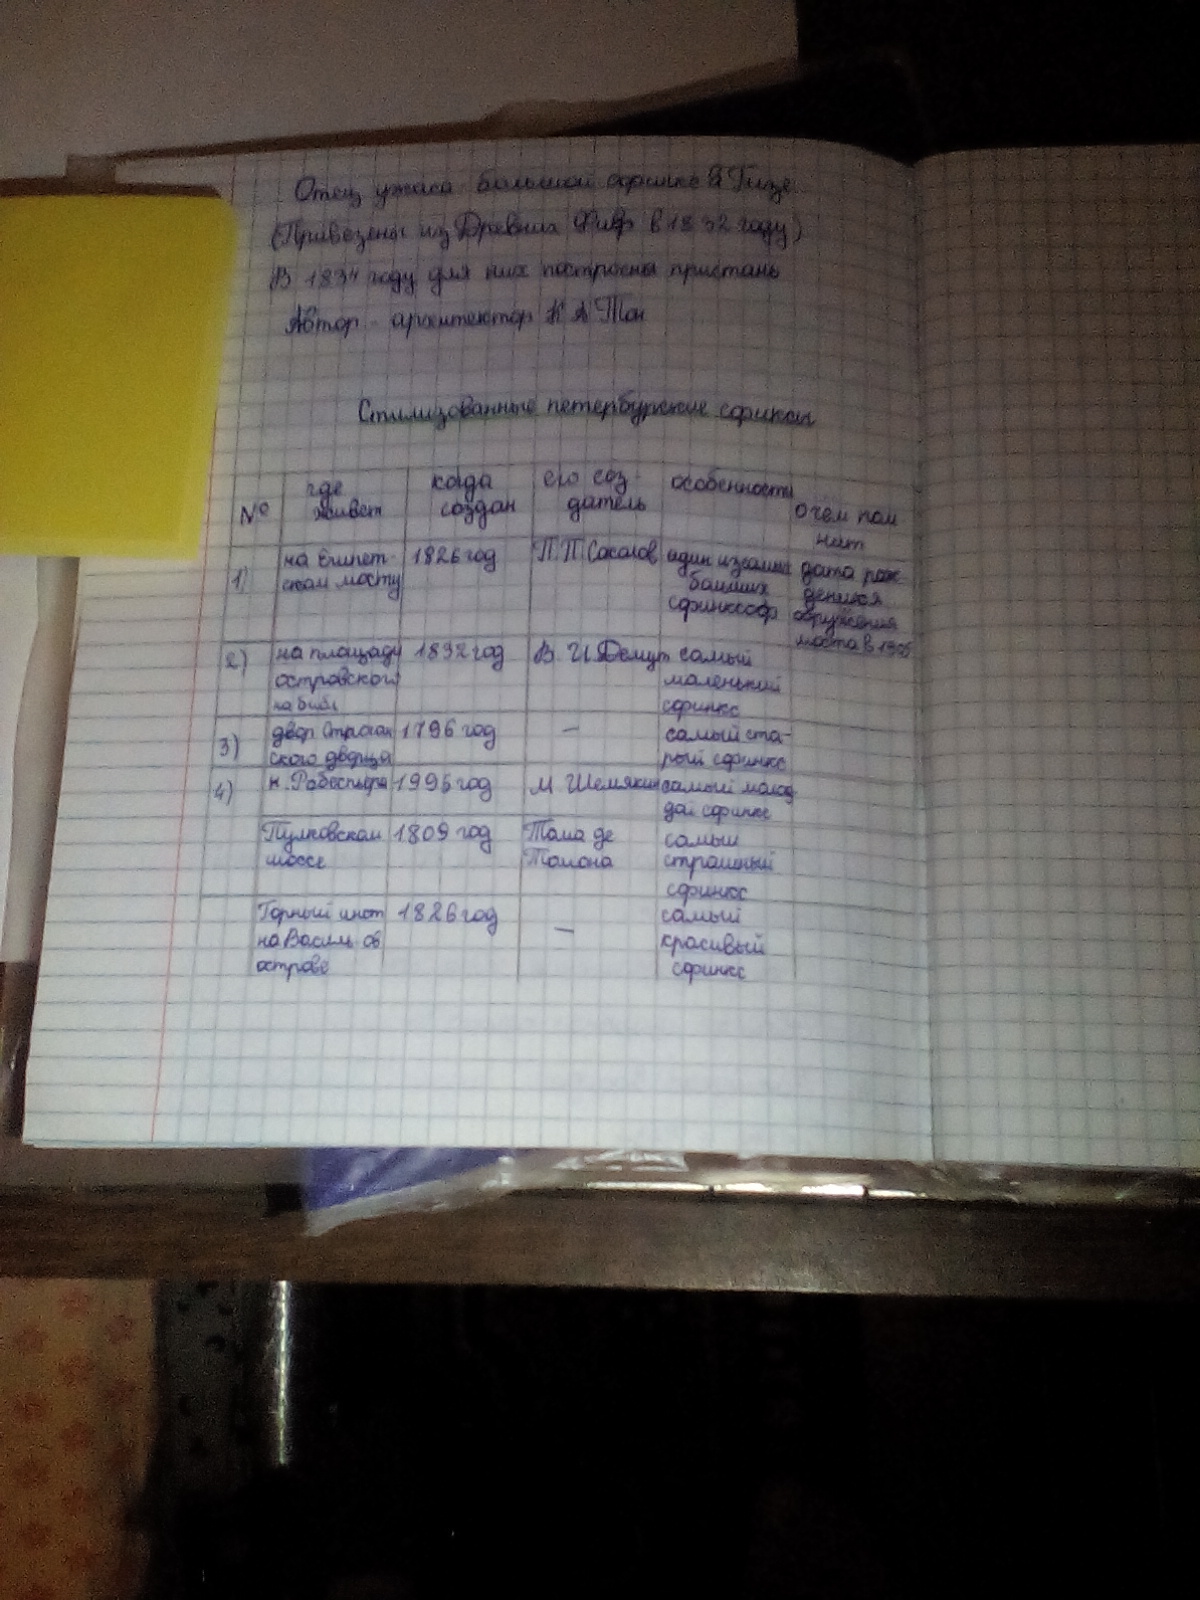 Отец ужаса большой сфинкс в Гизе.
(Привезены из Древних Фив в 1832 году)
В 1834 году для них построена пристань
Автор - архитектор К А Тон
Стилизованные петербургские сфинксы
№ где живет когда создан его создатель особенности о чем помнит
1) на Египетском мосту 1826 год П. П. Соколов один из самых сфинксоф дата рождения моста в
2) на площаду островского 1832 год В. И. Демут самый маленький сфинкс
3) двор Строган ского дворца 1796 год — самый ста- рый сфинкс
4) н. Робеспьера 1995 год М. Шемякин самый молод дой сфинкс
Пулковском шоссе 1809 год Тома де Томона самый страшный сфинкс
Горный инст на Василь ов острове 1826 год — самый красивый сфинкс